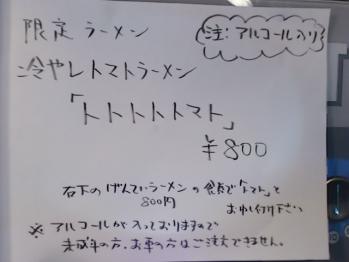 限定 ラーメン
注：アルコール入り
冷やしトマトラーメン
「トトトトトマト」
¥800
右下の げんていラーメン の 食券で「トマト」と
800円
お申し付け下さい
※ アルコールが入っておりますので
未成年の方、お車の方はご注文できません。